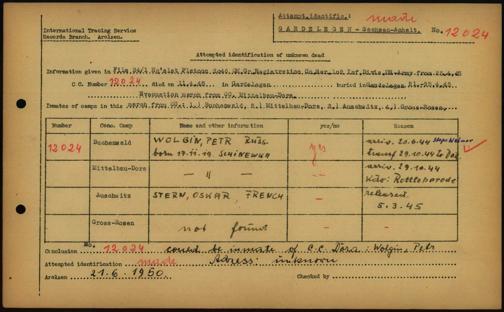 International Tracing Service
Records Branch. Arolsen.
Attempt.identific.: made
GARDELEGEN - Sachsen-Anhalt. No. 12024
Attempted identification of unknown dead
Information given in
C.C. Number 12024 died on 11.4.45 in Gardelegen buried in Gardelegen 21.-25.4.45
Evacuation march from CC. Mittelbau-Dora.
Inmates of camps in this march from CC.: 1.) Buchenwald, 2.) Mittelbau-Dora, 3.) Auschwitz, 4.) Gross-Rosen.
Number Conc. Camp Name and other information yes/no Reason
12024 Buchenwald WOLGIN, PETR Russ. born 17.11.19 yes arriv. 20.6.44 transf 29.10.44 to
Mittelbau-Dora — " — arriv. 29.10.44 Kdo: Rottleberode
Auschwitz STERN, OSKAR, FRENCH released 5.3.45
Gross-Rosen not found
Conclusion No. 12024 could be inmate of C.C. Dora: Wolgin, Petr
Attempted identification made Adress: unknown
Arolsen 21.6.1950 Checked by